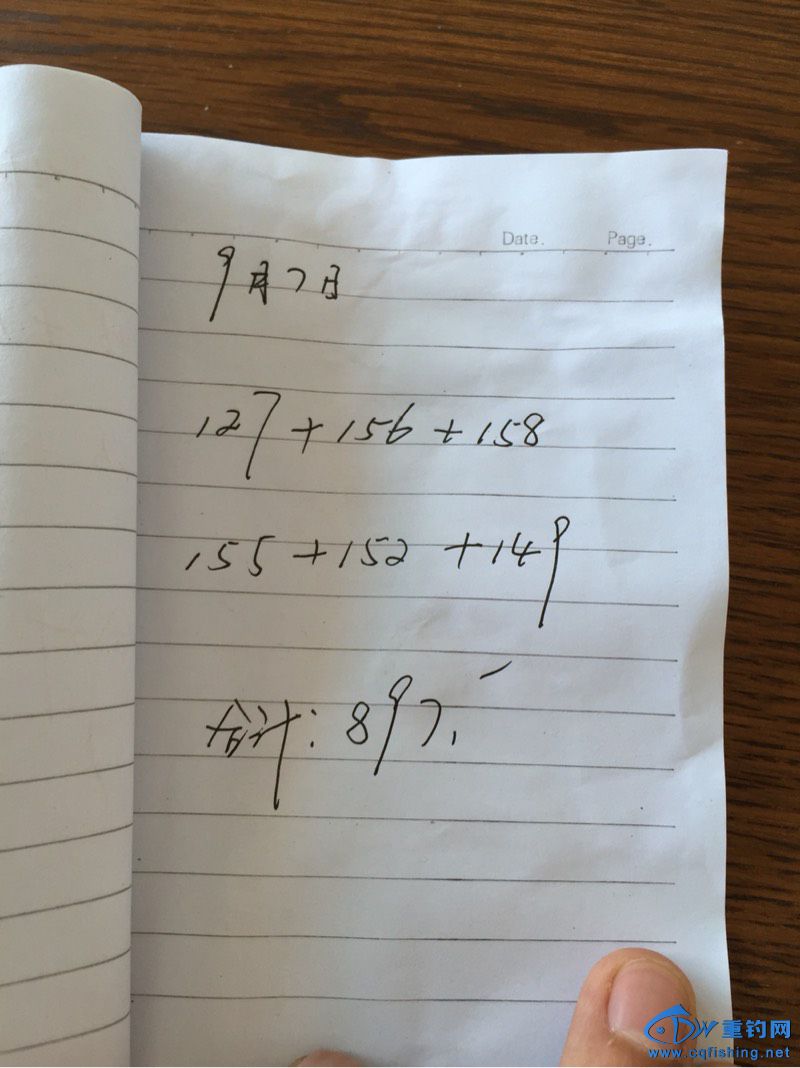 Date. Page.
9月7日
127+156+158
155+152+149
合计: 897.
重钓网
www.cqfishing.net